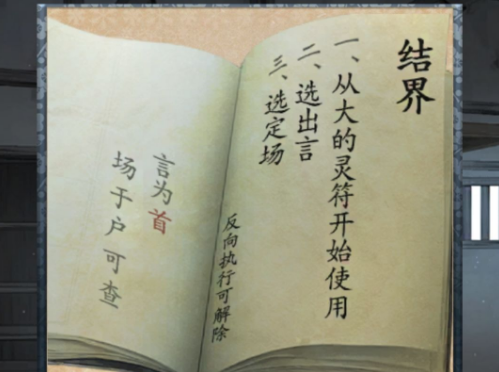 结界
一、从大的灵符开始使用
二、选出言
三、选定场
反向执行可解除
言为首
场于户可查